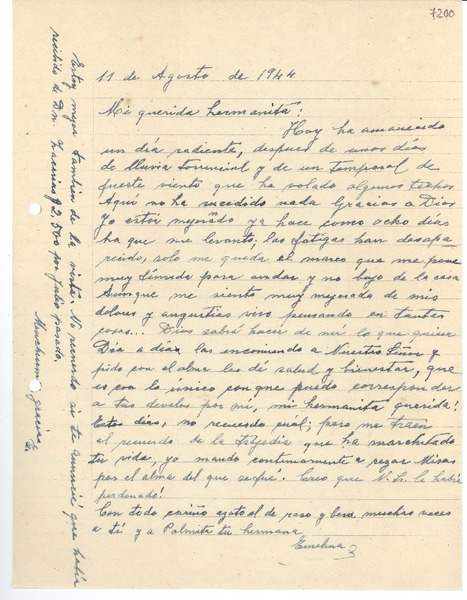 7200
11 de Agosto de 1944
Mi querida hermanita:
Hoy ha amanecido
un día radiente, despues de unos días
de lluvia torrencial y de un temporal de
fuerte viento que ha volado algunos techos
Aqui no ha sucedido nada Gracias a Dios
Yo estoy mejor ya hace como ocho días
ha que me levanto; las fatigas han desapa
recido, solo me queda el mareo que me pone
muy tímida para andar y no bajo de la casa
Aunque me siento muy mejorada de mis
dolores y angustias vivo pensando en tantas
cosas... Dios sabrá hacer de mi lo que quiere
Día a día las encomiendo a Nuestro Señor y
pido con el alma les dé salud y bienestar, que
es con lo único con que puedo corresponder
a tus desvelos por mí, mi hermanita querida!
Estos días, no recuerdo cuál; pero me traen
el recuerdo de la trajedia que ha marchitado
tu vida, yo mando continuamente a rezar Misas
por el alma del que se fue. Creo que N. Sr. le habrá
perdonado!
Con todo cariño te beso muchas veces
a tí y a Palmita tu hermana
Emelina
Estoy mejor tambien de la vista. No recuerdo si te anuncié que había
recibido de Dn. Zacarías $ 2.500 por Julio pasado.
Muchisimas gracias
E.